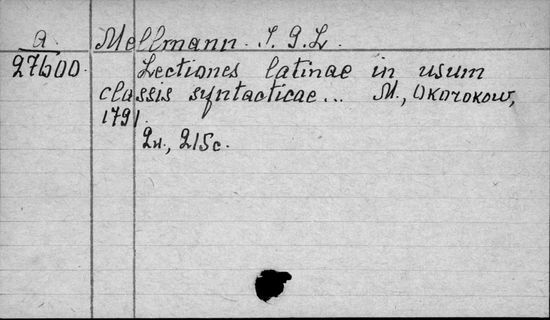 a. Mellmann. I. G. L.
27600. Lectiones latinae in usum
classis syntacticae... M., Okorokow,
1791.
2н., 215с.